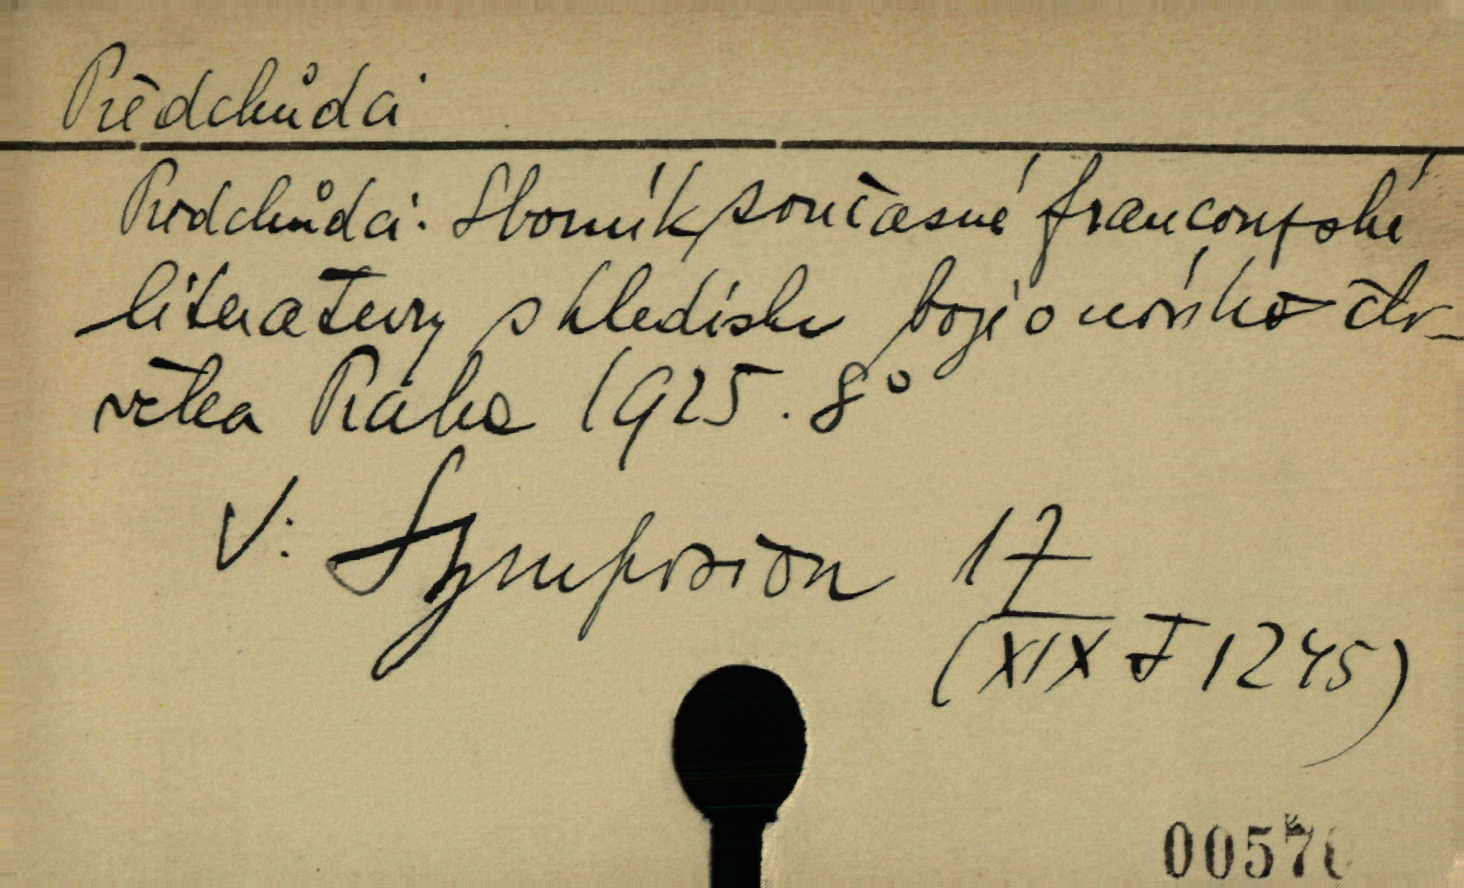 Předchůdci
Předchůdci. Sborník současné francouzské
literatury s hlediska boje o nového člo-
věka Praha 1925. 8°
V: Symposion 17
(XIX J 1245)